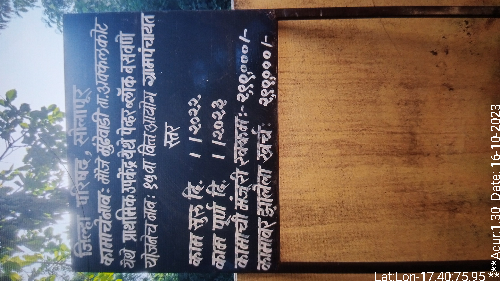 जिल्हा परिषद, सोलापूर
कामाचे नाव: मौजे बुऱ्हेवाडी ता. अक्कलकोट
येथे प्राथमिक उपकेंद्र येथे पेव्हर ब्लॉक बसवणे
योजनेचे नाव: १५वा वित्त आयोग ग्रामपंचायत
स्तर
काम सुरु दि. / /२०२२
काम पूर्ण दि. / /२०२३
कामाची मंजुरी रक्कम:-
कामावर झालेला खर्च:
Lat:Lon-17.40:75.95
***Acur:1.30 Date: 16-10-2023